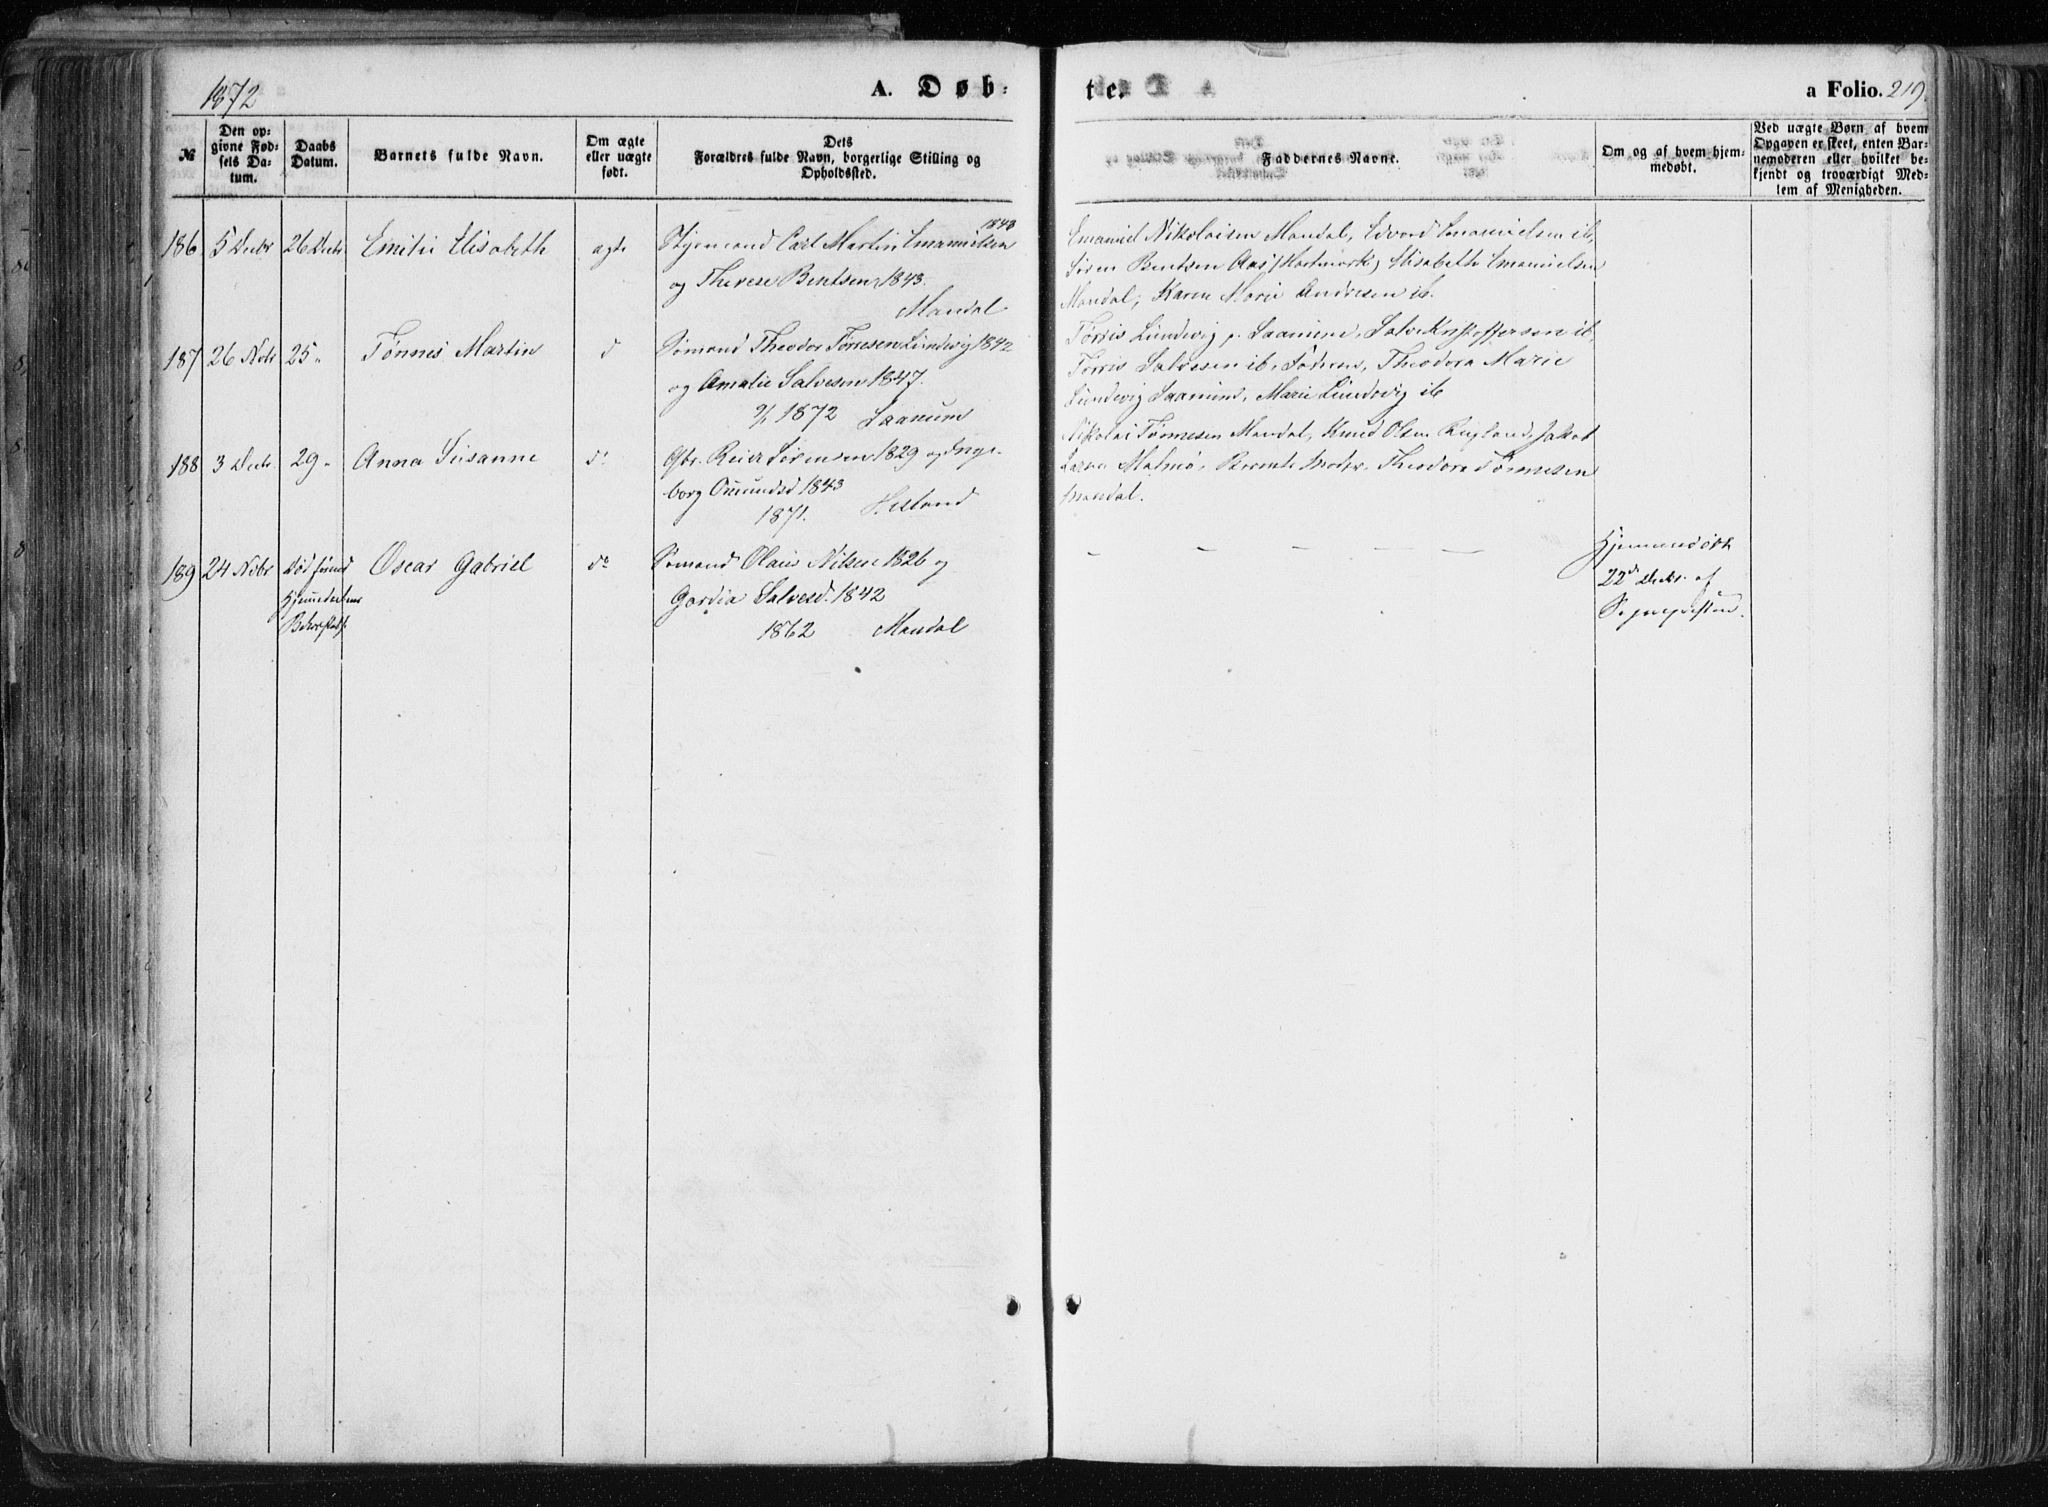 1872
A. Døb-
te.
a Folio. 219.
№
Den op-
givne Fød-
sels Da-
tum.
Daabs
Datum.
Barnets fulde Navn.
Om ægte
eller uægte
født.
Dets
Forældres fulde Navn, borgerlige Stilling og
Opholdssted.
Faddernes Navne.
Om og af hvem hjem-
medøbt.
Ved uægte Børn af hvem
Opgaven er skeet, enten Bar-
nemoderen eller hvilket be-
kjendt og troværdigt Med-
lem af Menigheden.
186 5 Decbr 26 Decbr Emilie Elisabeth ægte
1848
Carl Martin Emanuelsen
og Therese Bentsen 1843.
Mandal
Emanuel Nikolaisen Mandal, Edvard Emanuelsen ib,
Søren Bentsen Aas (Hartmark) Elisabeth Emanuelsen
Mandal, Karen Marie Andresen ib.
187 26 Nobr 25 " Tønnes Martin d
Sømand Theodor Tørresen Lundevig 1842
og Amalie Salvesen 1847.
1872 Saanum
Tørris Lundevig p. Saanum, Salve Kristoffersen ib,
Tørris Salvesen ib, Theodora Marie
Lundevig Saanum, Marie Lundevig ib
188 3 Decbr 29 " Anna Susanne do
Gbr. Reier Sørensen 1829 og Inge-
borg Omundsd 1843
1871. Hesland
Nikolai Tønnesen Mandal, Knud Olsen Jakob
Larsen Malmø, Berente Theodora Tønnesen
Mandal.
189 24 Nobr død forind
Oscar Gabriel do
Sømand Olaus Nilsen 1826 og
Gardia Salvesd. 1842
1862 Mandal
Hjemmedøbt
22de Decbr. af
Sognepresten.